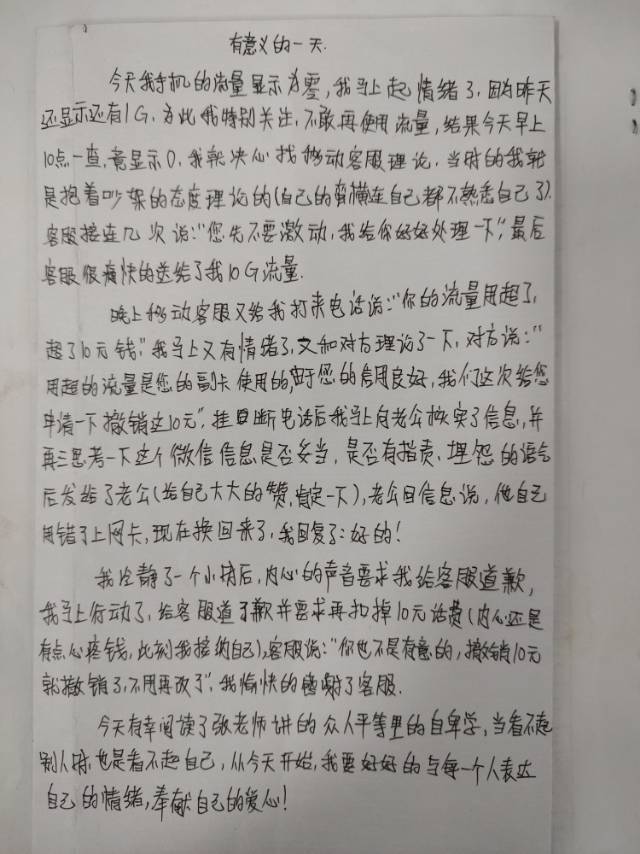 有意义的一天.
今天我手机的流量显示为零,我马上起情绪了,因为昨天
还显示还有1G,为此我特别关注,不敢再使用流量,结果今天早上
10点一查,竟显示0,我就决心找移动客服理论,当时的我就
是抱着吵架的态度理论的(自己的蛮横连自己都不熟悉自己了).
客服接连几次说:“您先不要激动,我给你好好处理一下”,最后
客服很痛快的送给了我10G流量.
晚上移动客服又给我打来电话说:“你的流量用超了,
超了10元钱.”我马上又有情绪了,又和对方理论了一下,对方说:“
用超的流量是您的副卡使用的,由于您的信用良好,我们这次给您
申请一下撤销这10元”,挂断电话后我马上向老公核实了信息,并
再三思考一下这个微信信息是否妥当,是否有指责、埋怨的语气
后发给了老公(给自己大大的赞,肯定一下),老公回信息说,他自己
用错了上网卡,现在换回来了,我回复了:好的!
我冷静了一个小时后,内心的声音要求我给客服道歉,
我马上行动了,给客服道了歉并要求再扣掉10元话费(内心还是
有点心疼钱,此刻我接纳自己),客服说:“你也不是有意的,撤销10元
就撤销了,不用再改了”,我愉快的感谢了客服.
今天有幸阅读了张老师讲的众人平等里的自卑学,当看不起
别人时,也是看不起自己,从今天开始,我要好好的与每一个人表达
自己的情绪,奉献自己的爱心!